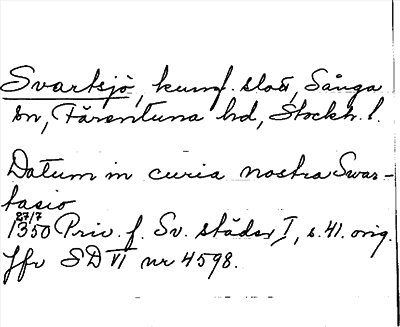 Svartsjö, kungl. slott, Sånga
sn, Färentuna hd, Stockh. l.
Datum in curia nostra Swar-
tasio
27/7
1350 Priv. f. Sv. städer I, s. 41. orig.
Jfr SD VI nr 4598.